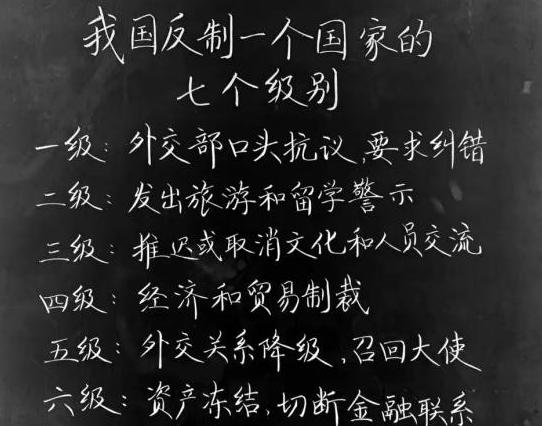 我国反制一个国家的
七个级别
一级：外交部口头抗议，要求纠错
二级：发出旅游和留学警示
三级：推迟或取消文化和人员交流
四级：经济和贸易制裁
五级：外交关系降级，召回大使
六级：资产冻结，切断金融联系